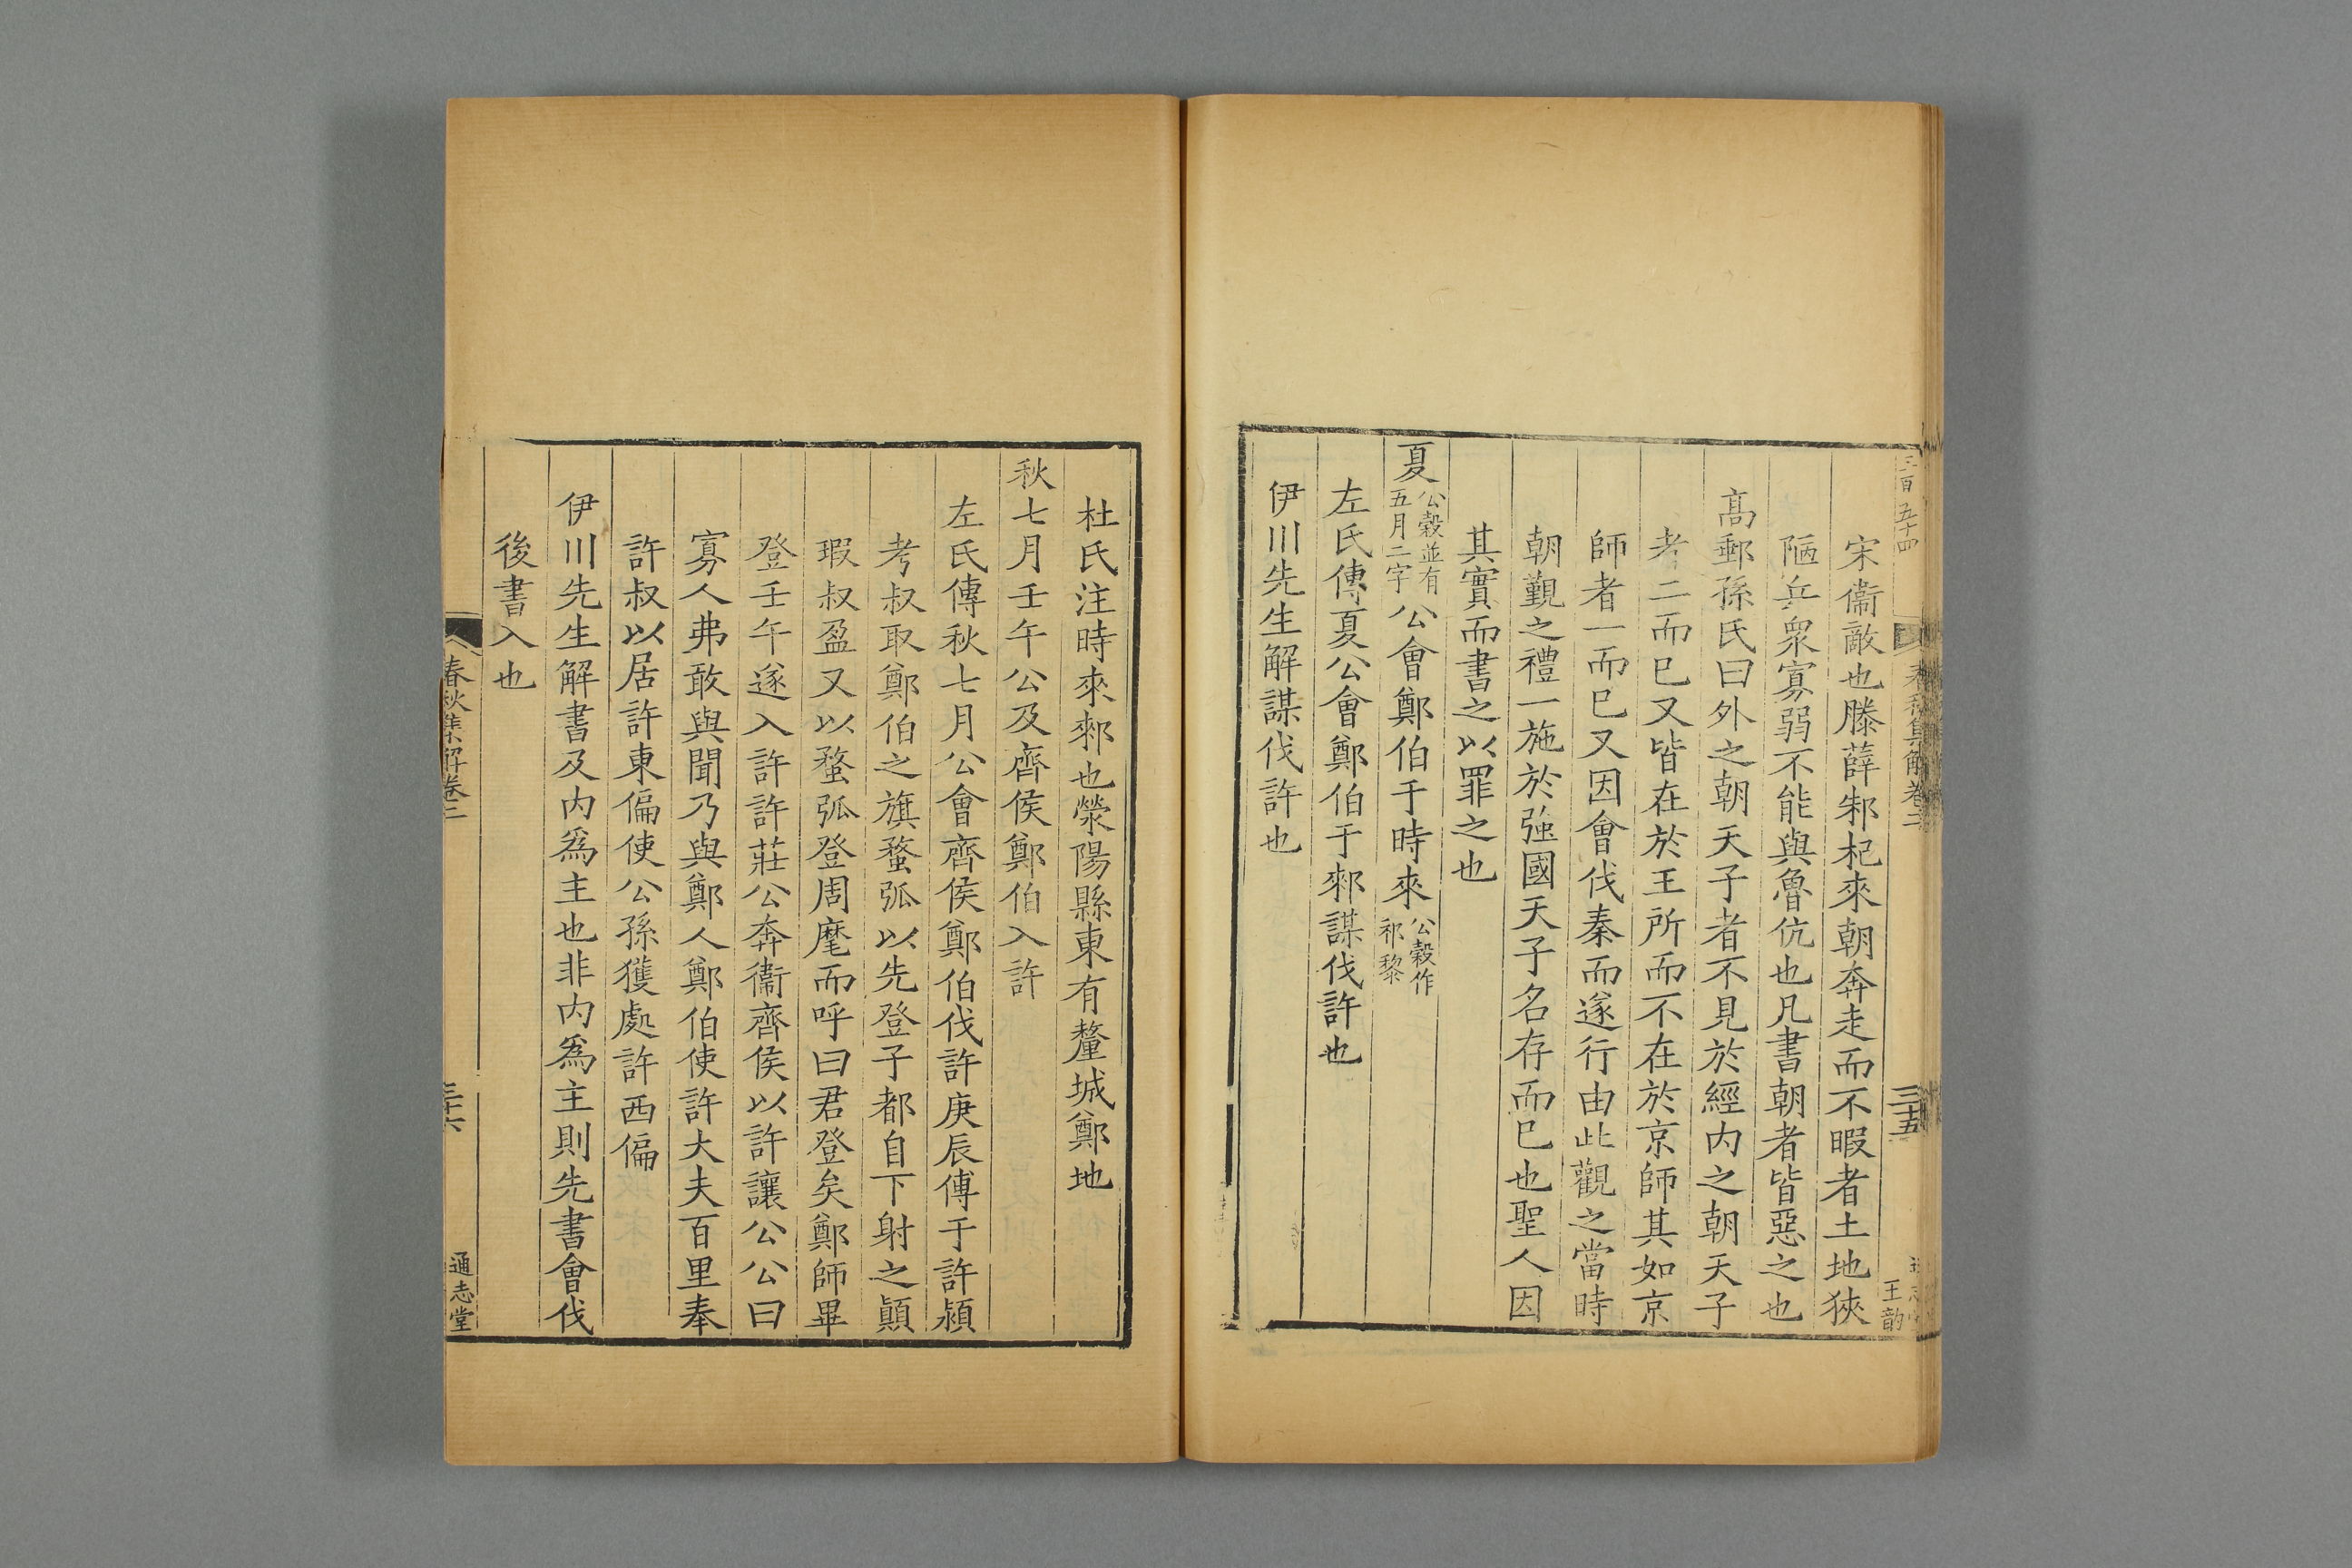 三百五十四
春秋集解卷二
三十五
王韵
宋衞敵也滕薛邾杞來朝奔走而不暇者土地狹
陋兵衆寡弱不能與魯伉也凡書朝者皆惡之也
髙郵孫氏曰外之朝天子者不見於經内之朝天子
者二而已又皆在於王所而不在於京師其如京
師者一而已又因會伐秦而遂行由此觀之當時
朝覲之禮一施於强國天子名存而已也聖人因
其實而書之以罪之也
夏公穀並有五月二字公會鄭伯于時來公穀作祁黎
左氏傳夏公會鄭伯于郲謀伐許也
伊川先生解謀伐許也
杜氏注時來郲也滎陽縣東有釐城鄭地
秋七月壬午公及齊侯鄭伯入許
左氏傳秋七月公會齊侯鄭伯伐許庚辰傅于許潁
考叔取鄭伯之旗蝥弧以先登子都自下射之顚
瑕叔盈又以蝥弧登周麾而呼曰君登矣鄭師畢
登壬午遂入許許莊公奔衞齊侯以許讓公公曰
寡人弗敢與聞乃與鄭人鄭伯使許大夫百里奉
許叔以居許東偏使公孫獲處許西偏
伊川先生解書及内爲主也非内爲主則先書會伐
後書入也
春秋集解卷二
三十六
通志堂